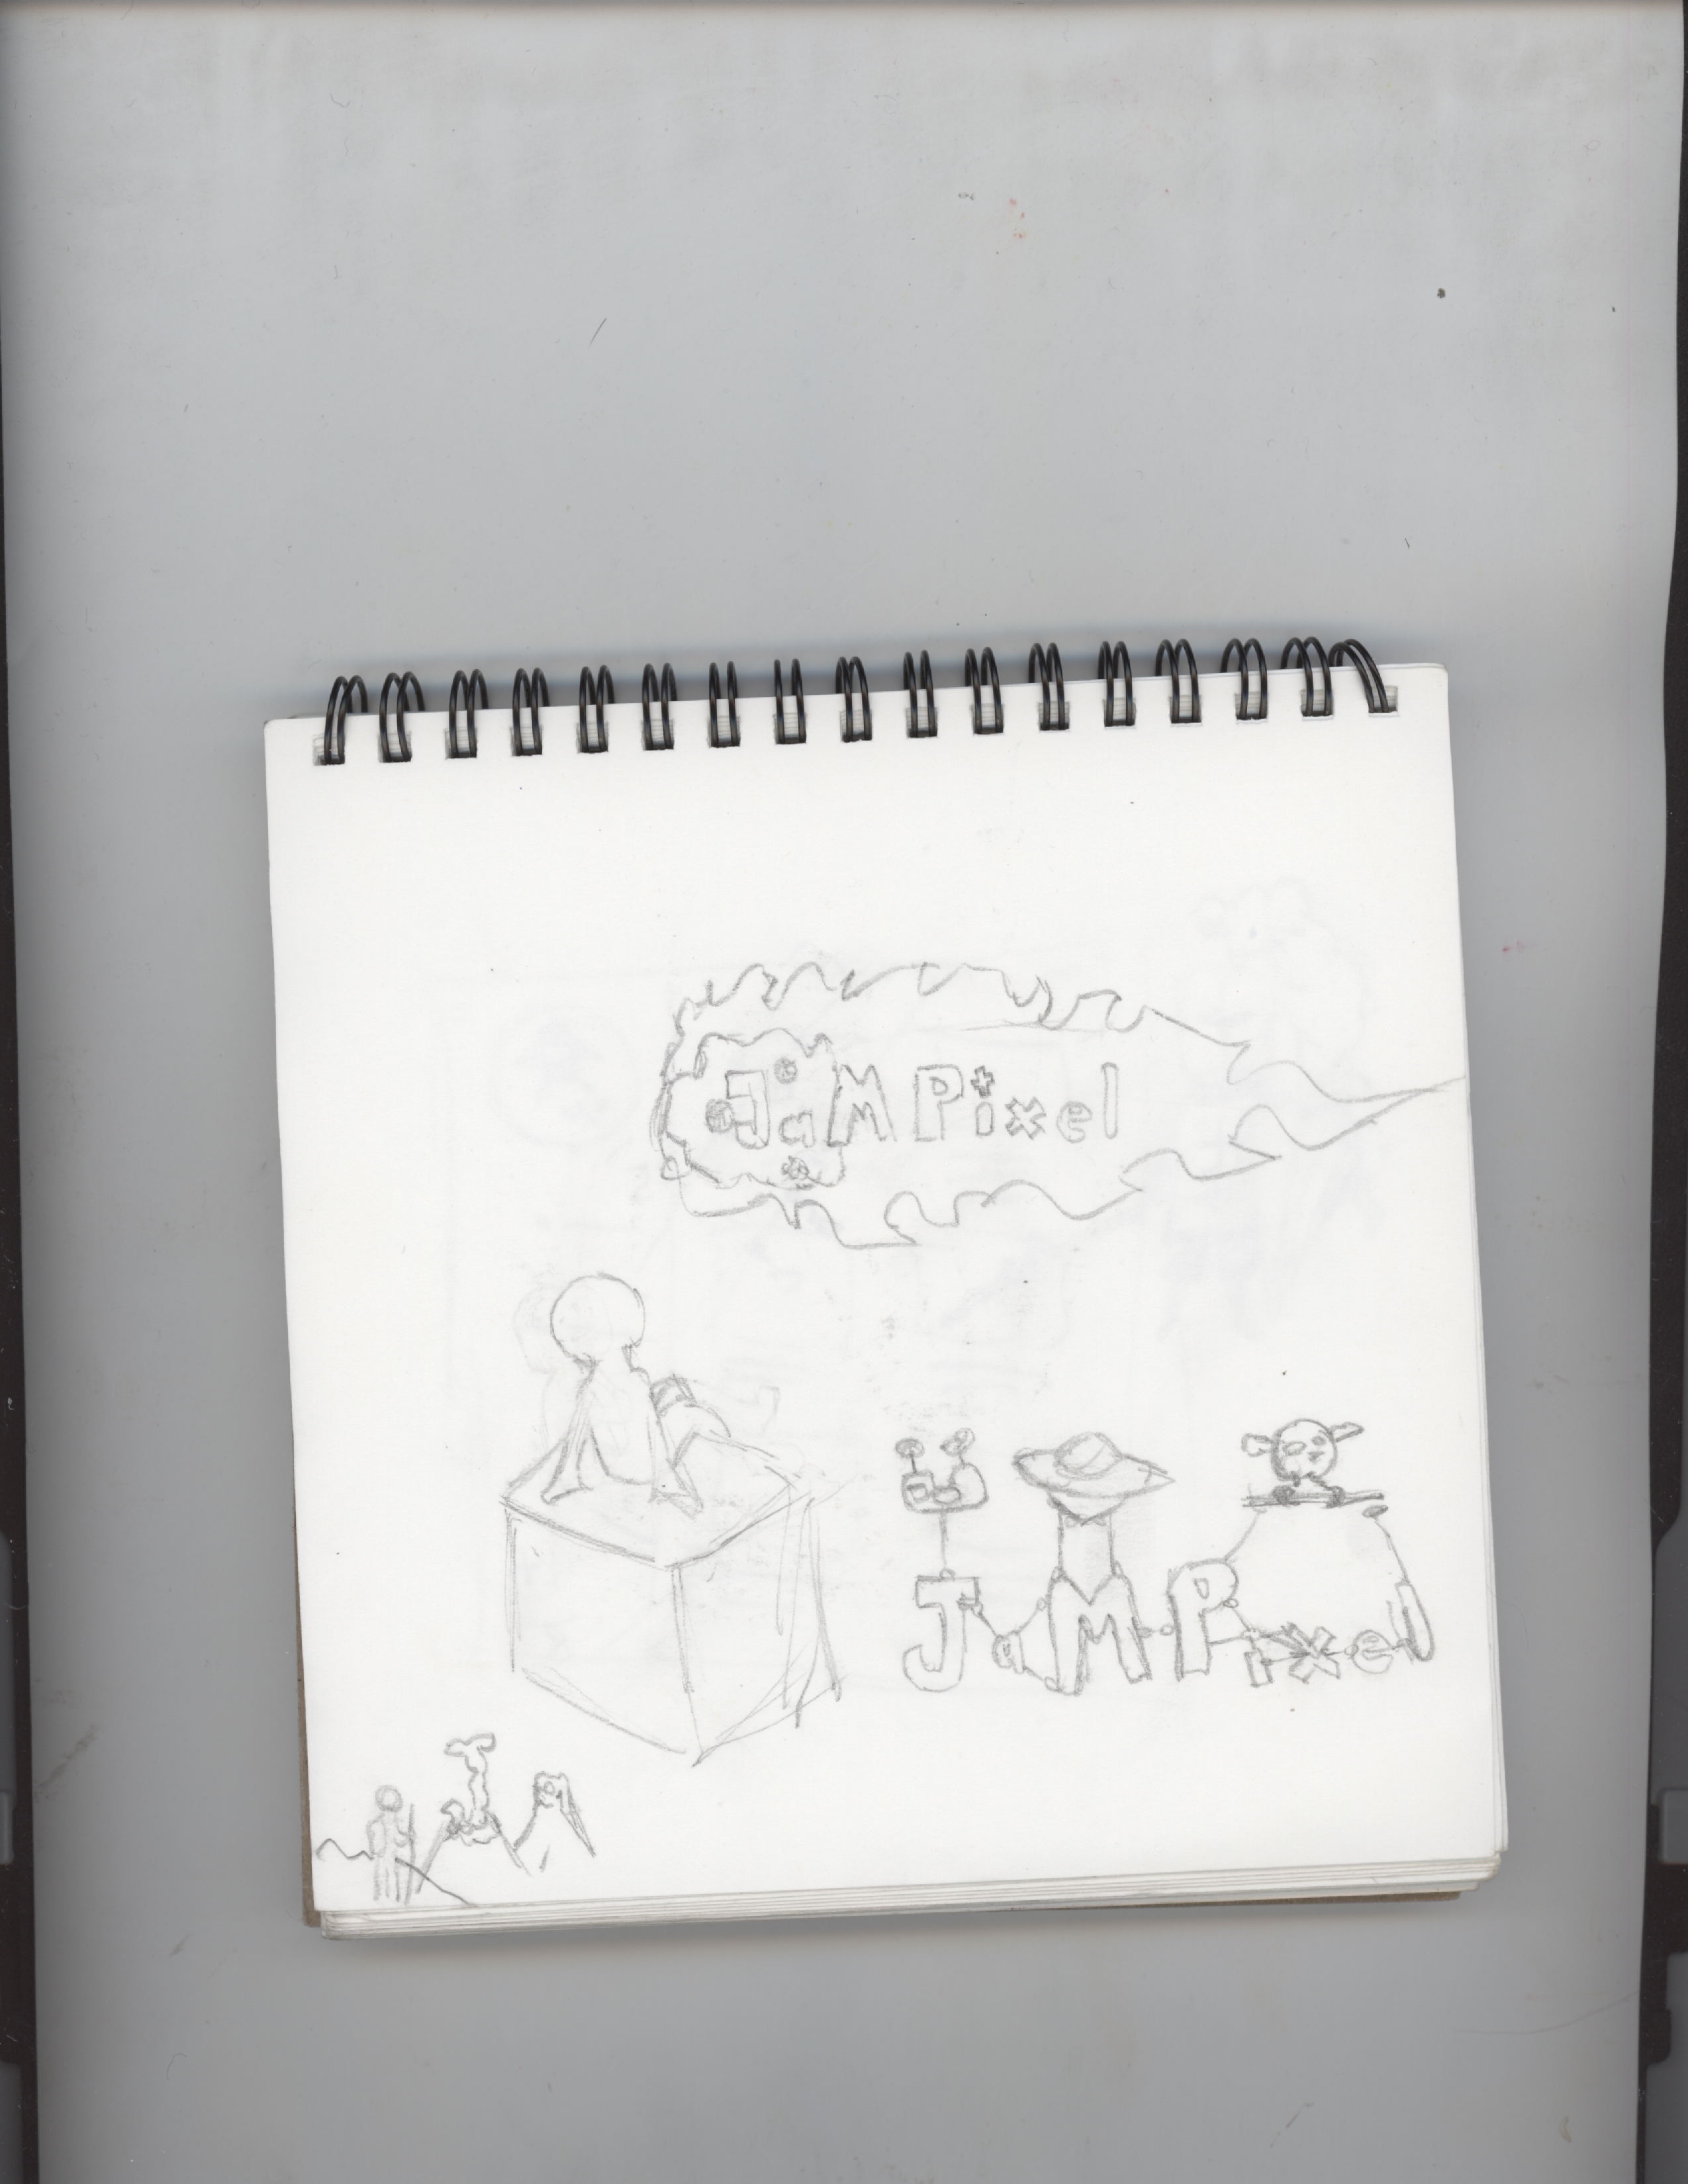 JaM Pixel
JaMPixel